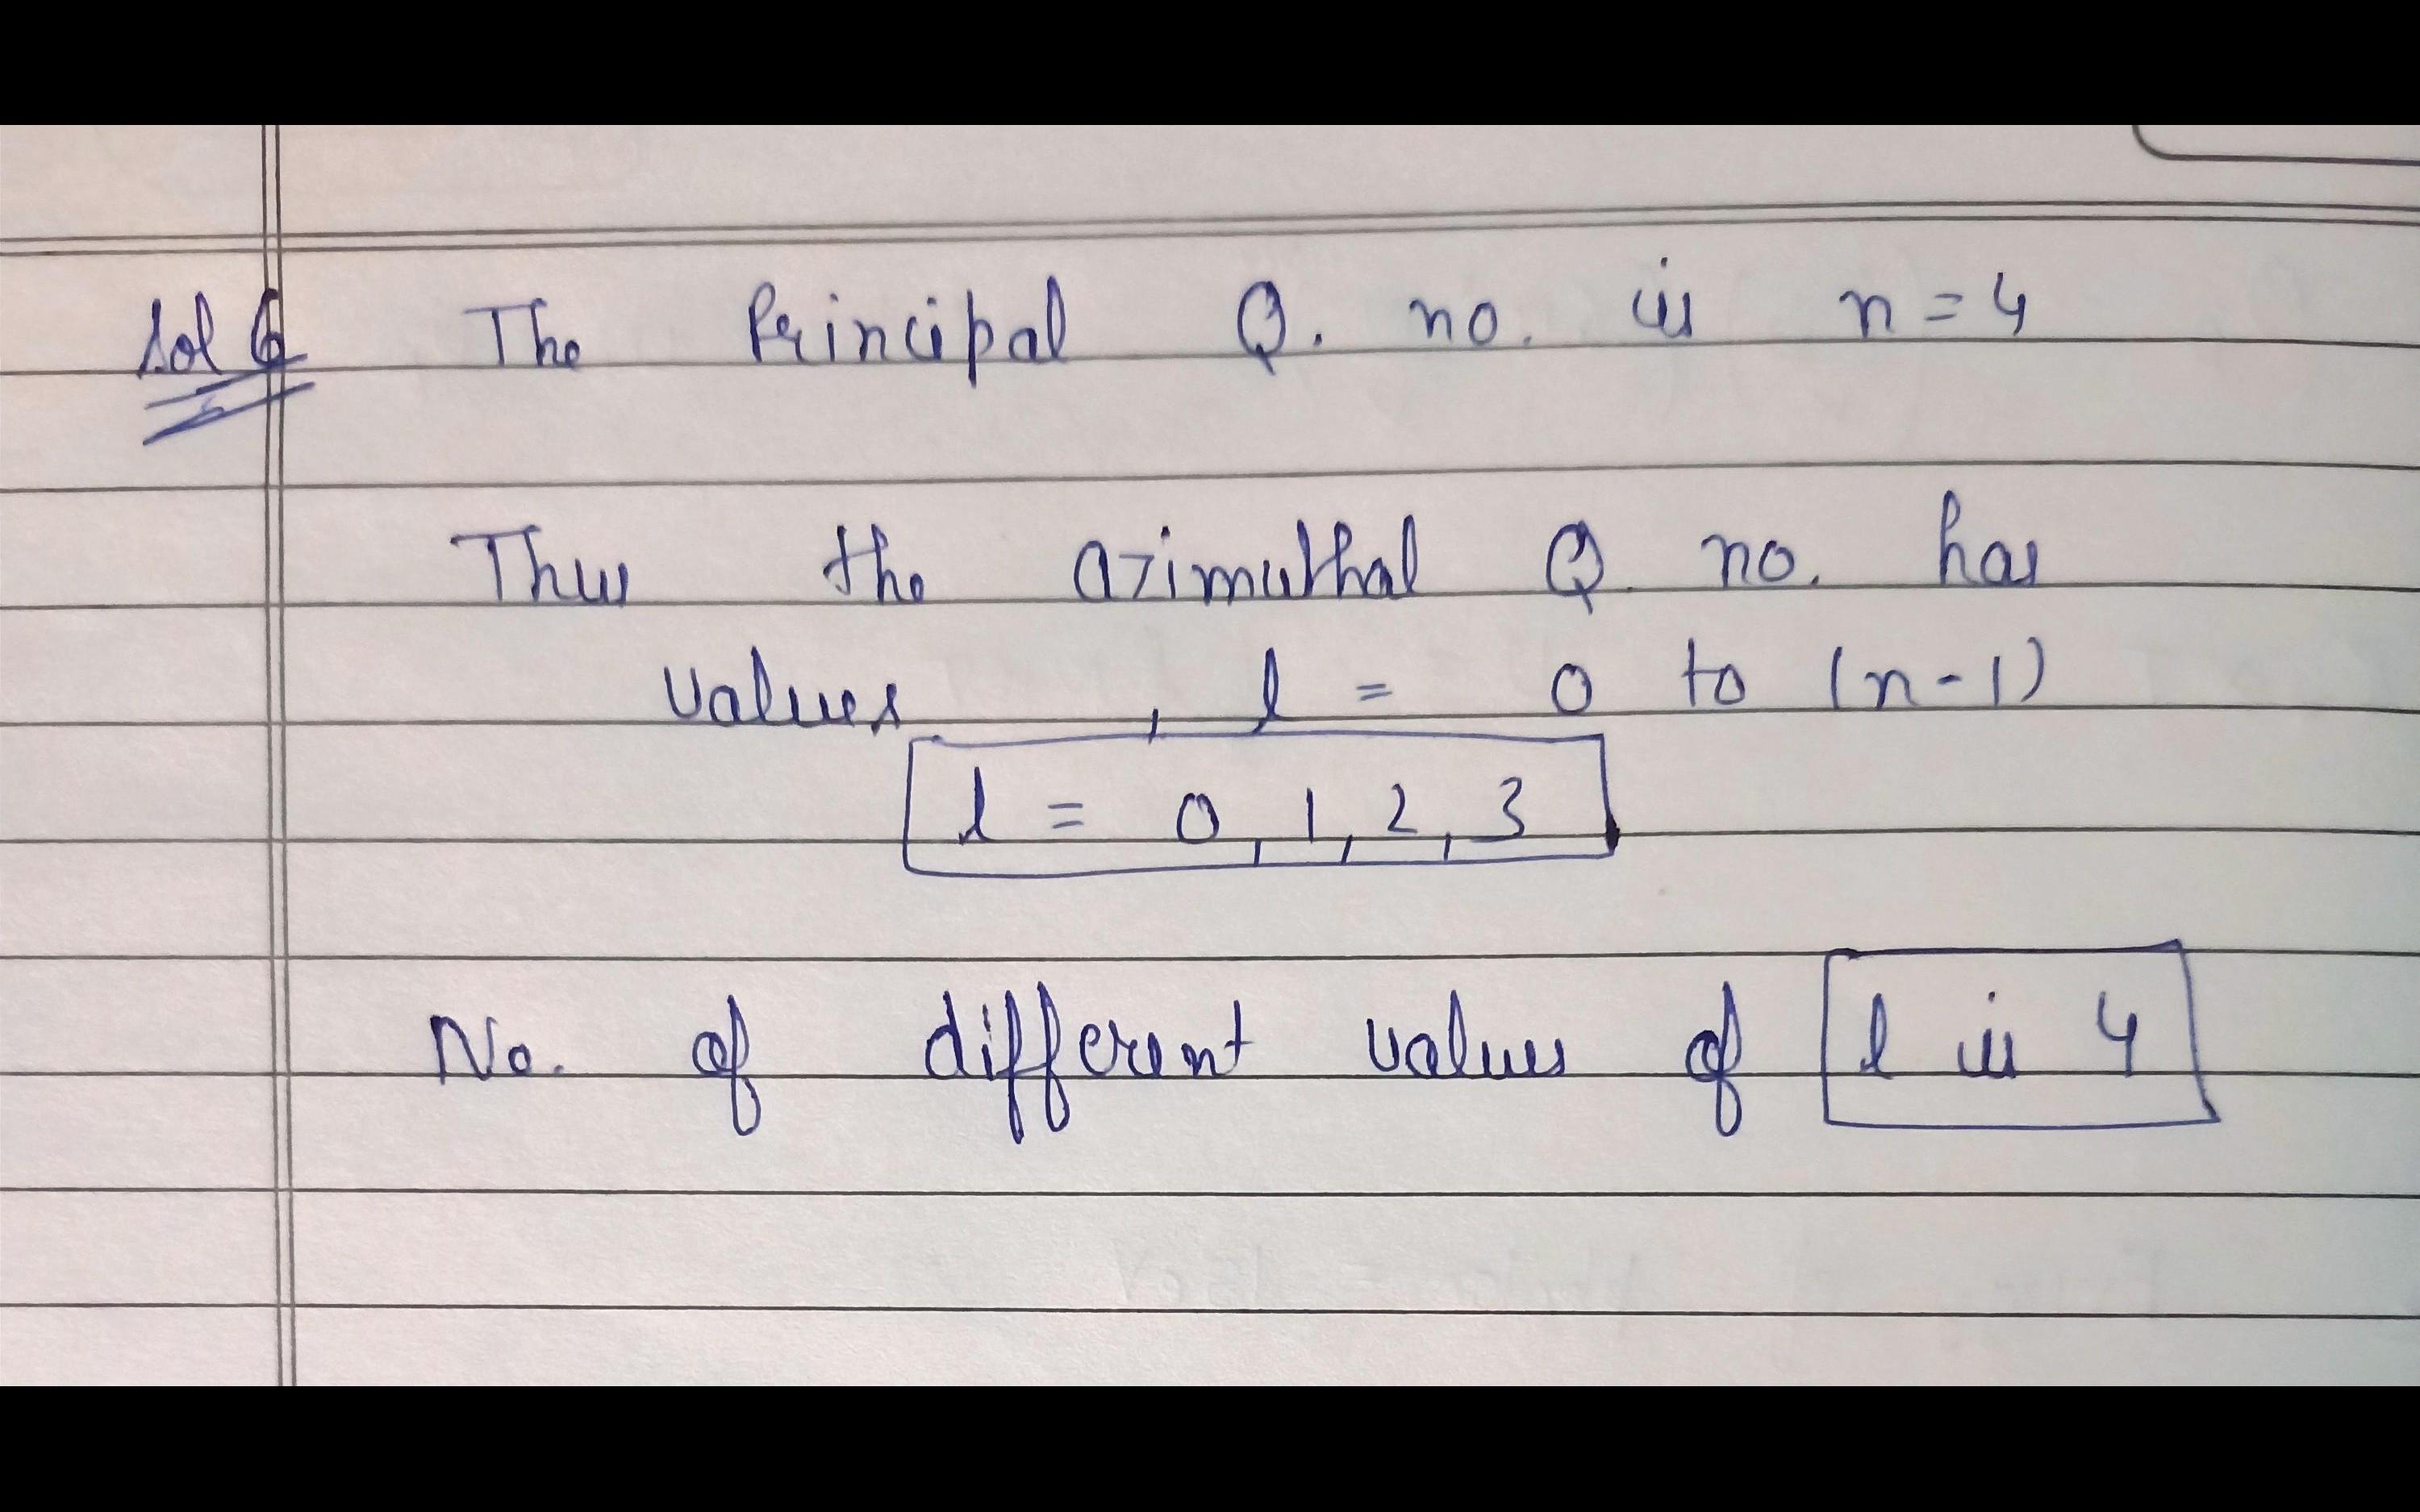 Sol 6 The Principal Q. no. is n = 4
Thus the azimuthal Q. no. has
values , l = 0 to (n-1)
l = 0, 1, 2, 3
No. of different values of l is 4